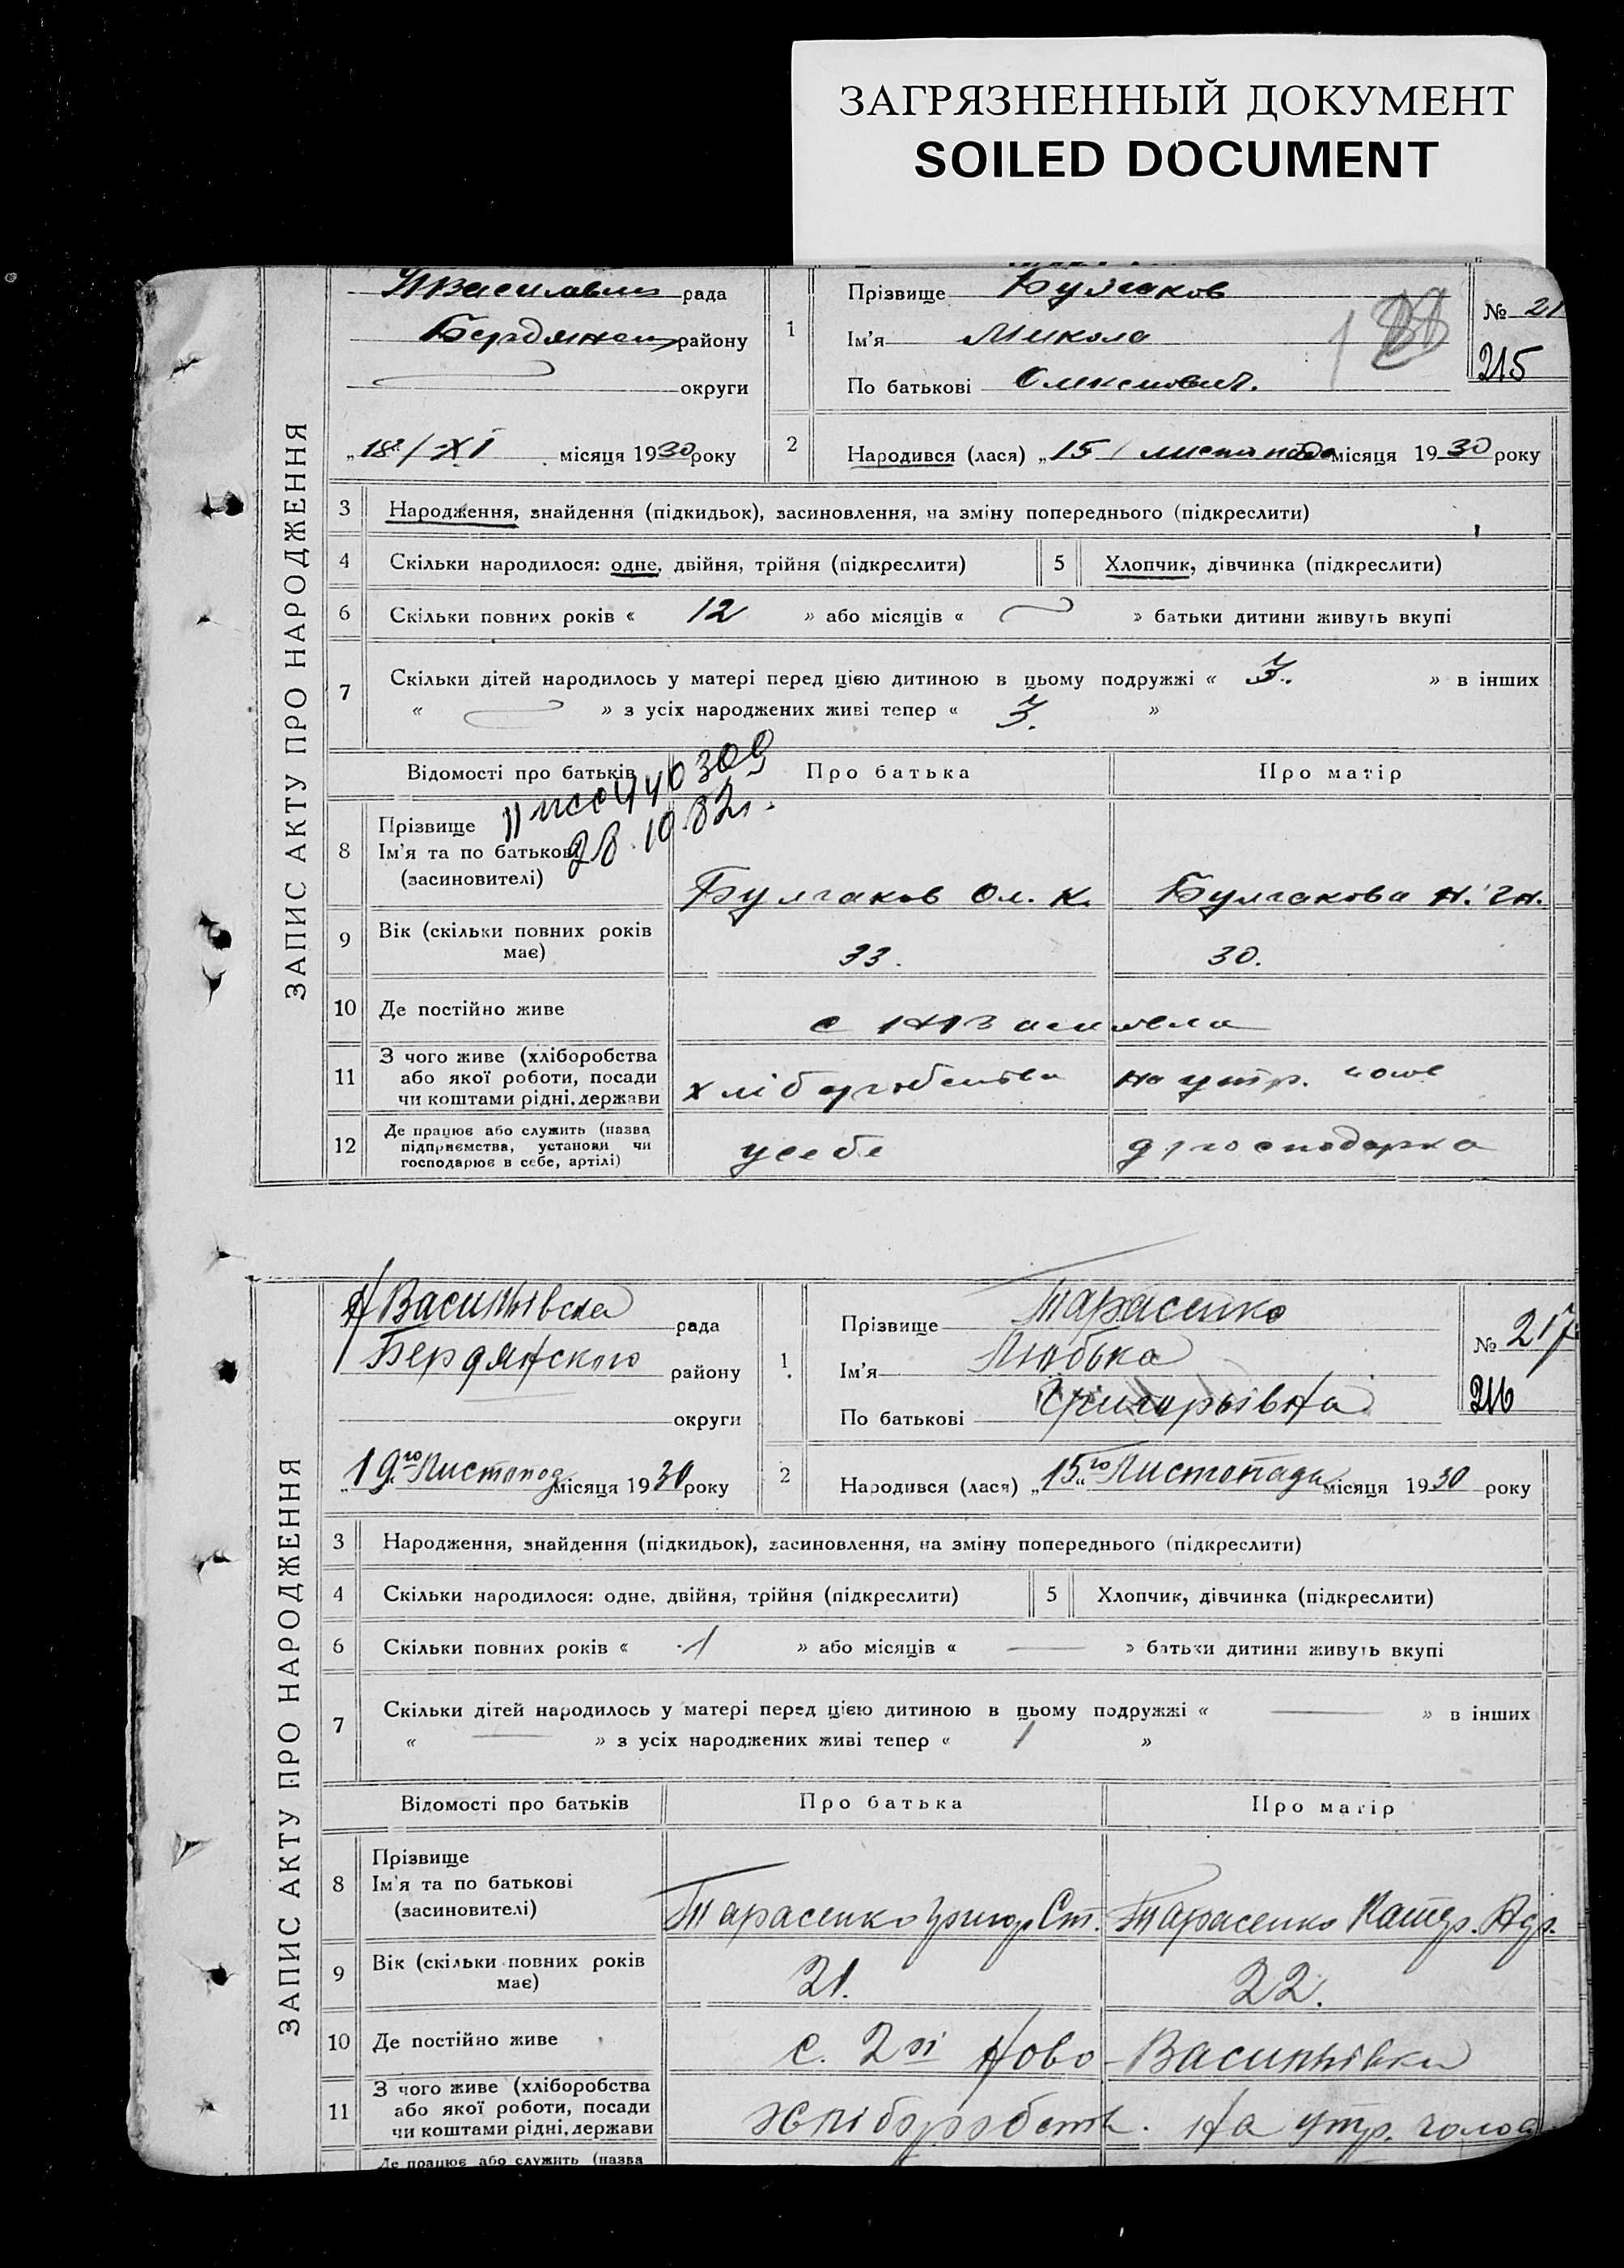 ЗАГРЯЗНЕННЫЙ ДОКУМЕНТ
SOILED DOCUMENT
ЗАПИС АКТУ ПРО НАРОДЖЕННЯ
рада
району
округи
„18"/ XI місяця 1930 року
1
Прізвище Булгаков
Ім'я Микола
По батькові
№ 21
215
2
Народився (лася) „15 / листопада місяця 1930 року
3 Народження, знайдення (підкидьок), засиновлення, на зміну попереднього (підкреслити)
4 Скільки народилося: одне, двійня, трійня (підкреслити) 5 Хлопчик, дівчинка (підкреслити)
6 Скільки повних років « 12 » або місяців « » батьки дитини живуть вкупі
7 Скільки дітей народилось у матері перед цією дитиною в цьому подружжі « 3. » в інших
« » з усіх народжених живі тепер « 3. »
Відомості про батьків Про батька Про матір
28.10.82г.
8 Прізвище
Ім'я та по батькові
(засиновителі)
Булгаков Ол. К. Булгакова
9 Вік (скільки повних років
має)
33. 30.
10 Де постійно живе с
11 З чого живе (хліборобства
або якої роботи, посади
чи коштами рідні, держави
хліборобство на утр.
12 Де працює або служить (назва
підприємства, установи чи
господарює в себе, артілі)
у себе д/господарка
ЗАПИС АКТУ ПРО НАРОДЖЕННЯ
Н Василівска рада
Бердянского району
округи
„19го Листопад місяця 1930 року
1
Прізвище Тарасенко
Ім'я Любька
По батькові Григорьівна
№ 217
216
2
Народився (лася) „15го" Листопада місяця 1930 року
3 Народження, знайдення (підкидьок), засиновлення, на зміну попереднього (підкреслити)
4 Скільки народилося: одне, двійня, трійня (підкреслити) 5 Хлопчик, дівчинка (підкреслити)
6 Скільки повних років « 1 » або місяців « — » батьки дитини живуть вкупі
7 Скільки дітей народилось у матері перед цією дитиною в цьому подружжі « — » в інших
« — » з усіх народжених живі тепер « 1 »
Відомості про батьків Про батька Про матір
8 Прізвище
Ім'я та по батькові
(засиновителі)
Тарасенко Григор Ст. Тарасенко Катер.
9 Вік (скільки повних років
має)
21. 22.
10 Де постійно живе с. 2гі Ново-Василівки
11 З чого живе (хліборобства
або якої роботи, посади
чи коштами рідні, держави
хліборобств. на утр. голов
Де працює або служить (назва